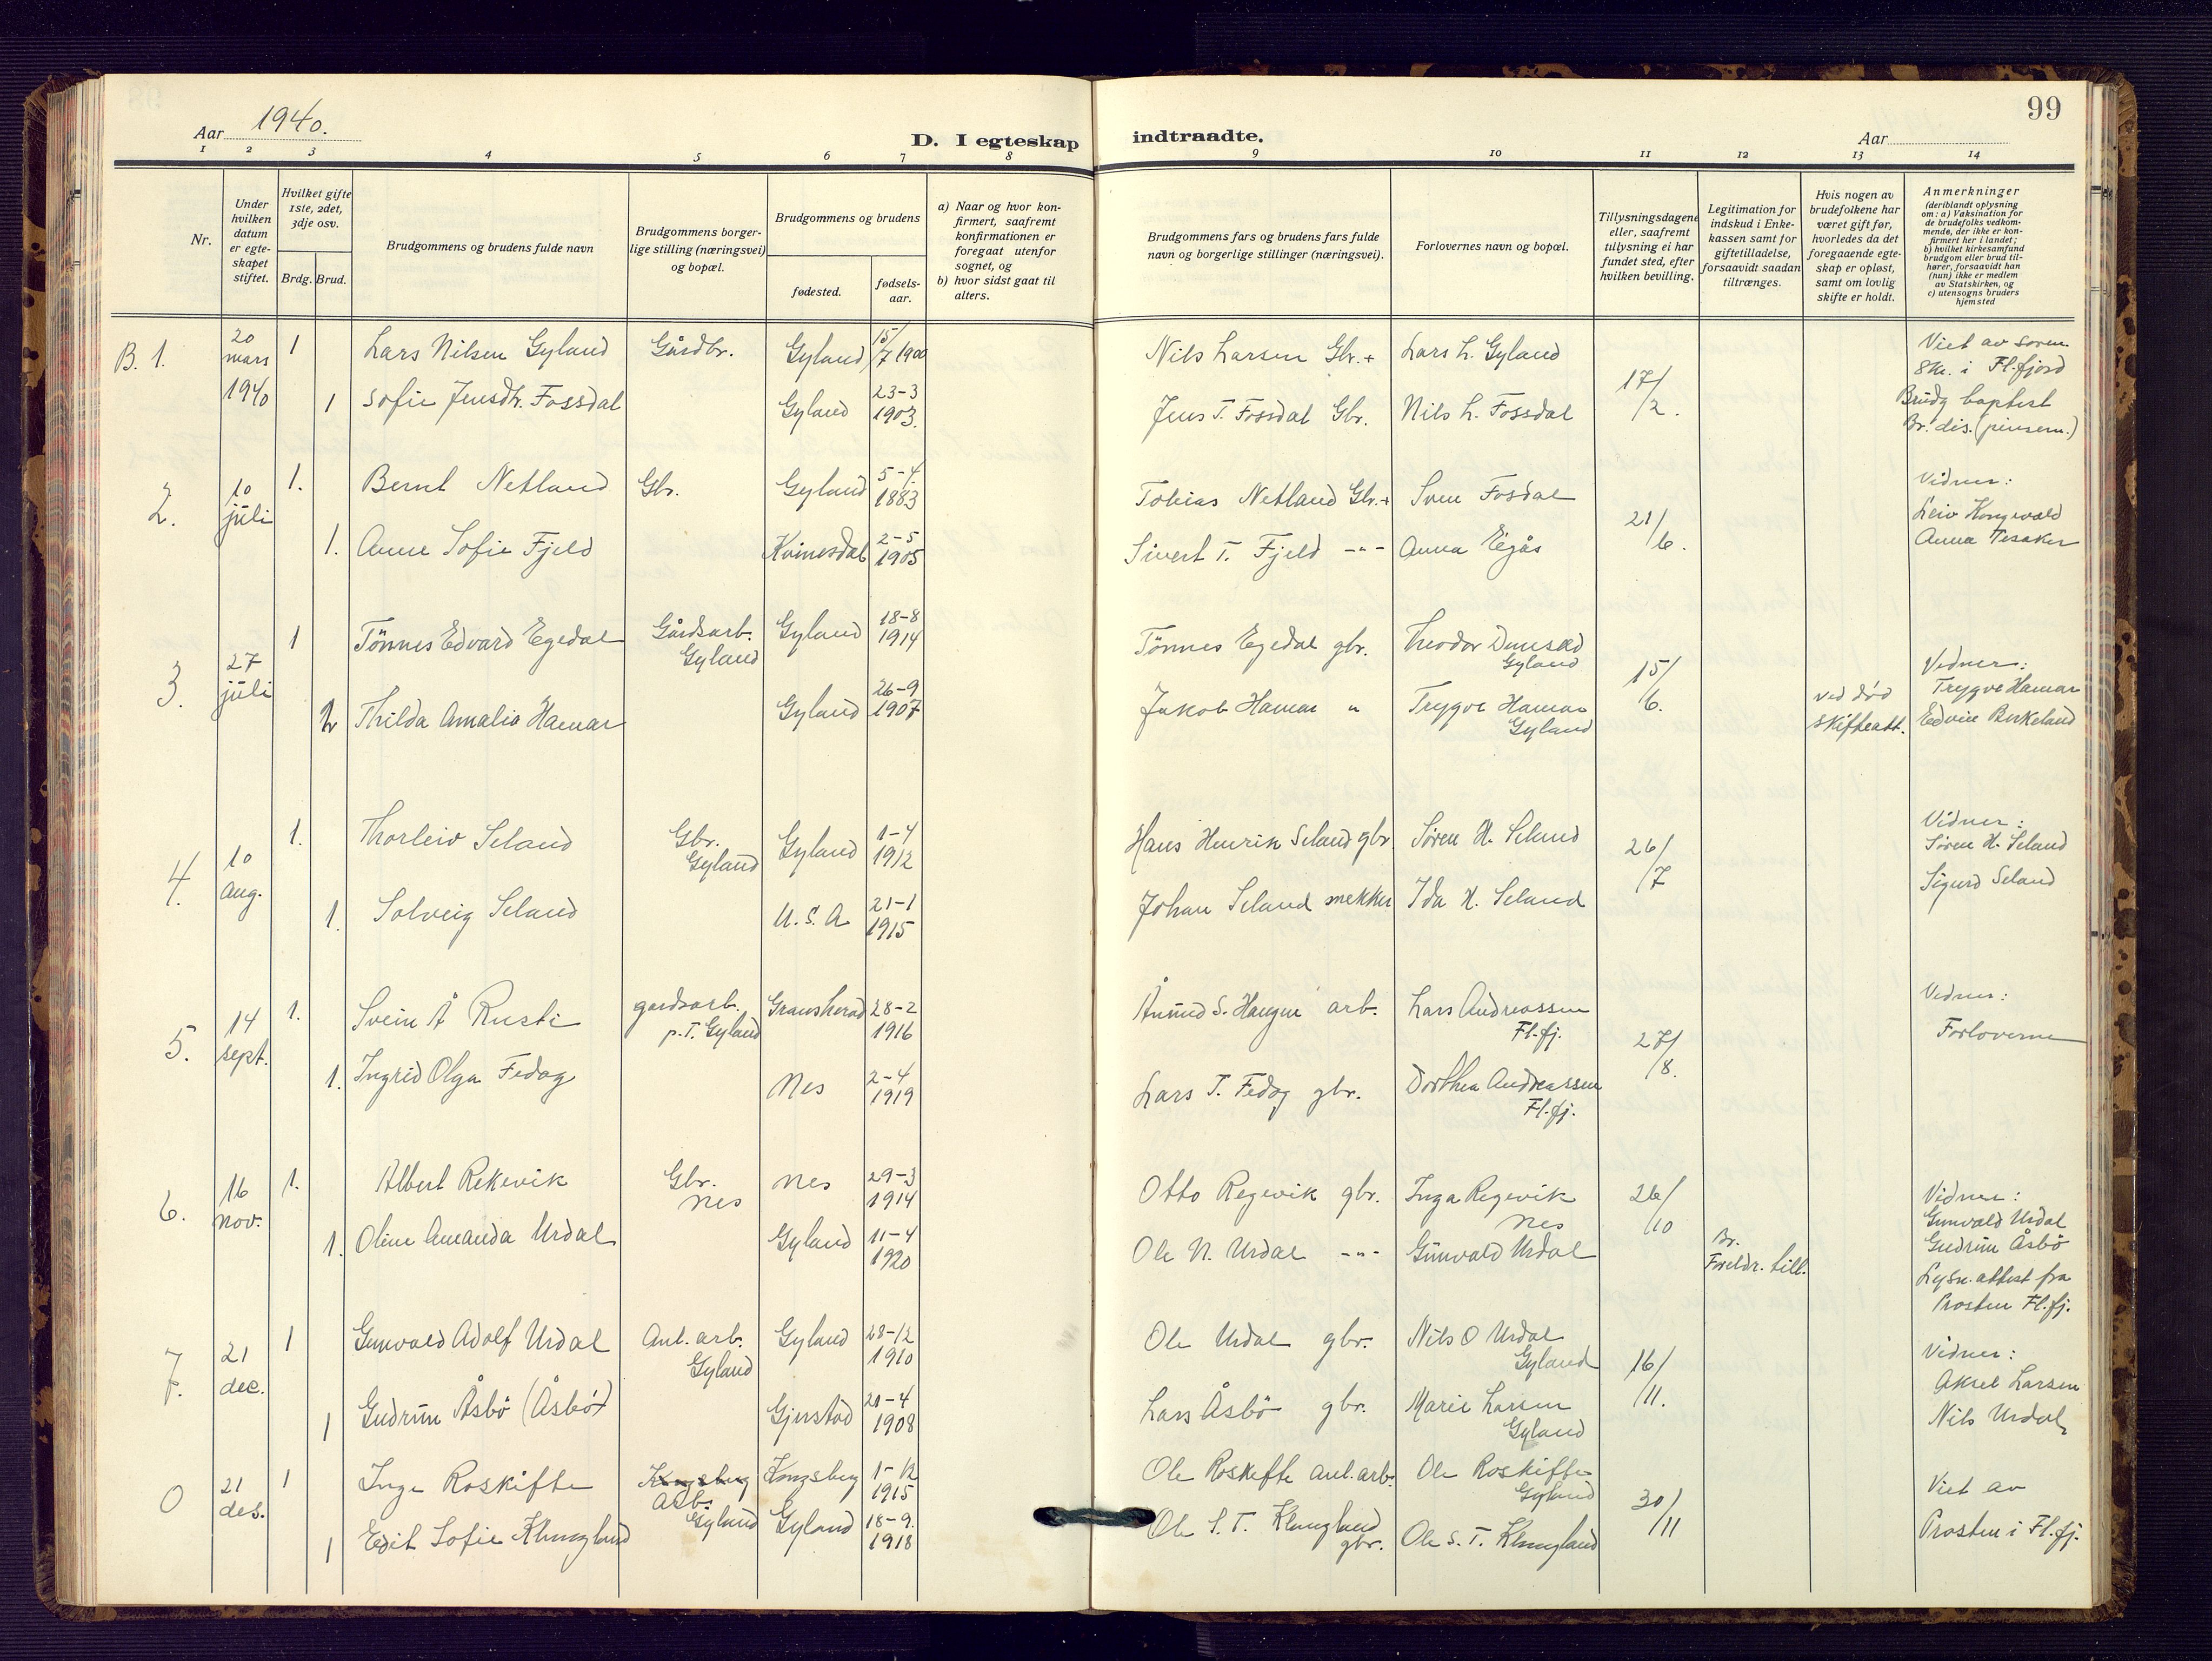 99
Aar 1940.
D. I egteskap
indtraadte.
Aar
1 2 3 4 5 6 7 8 9 10 11 12 13 14
Nr.
Under
hvilken
datum
er egte-
skapet
stiftet.
Hvilket gifte
1ste, 2det,
3dje osv.
Brdg.
Brud.
Brudgommens og brudens fulde navn
Brudgommens borger-
lige stilling (næringsvei)
og bopæl.
Brudgommens og brudens
fødested.
fødsels-
aar.
a) Naar og hvor kon-
firmert, saafremt
konfirmationen er
foregaat utenfor
sognet, og
b) hvor sidst gaat til
alters.
Brudgommens fars og brudens fars fulde
navn og borgerlige stillinger (næringsvei).
Forlovernes navn og bopæl.
Tillysningsdagene
eller, saafremt
tillysning ei har
fundet sted, efter
hvilken bevilling.
Legitimation for
indskud i Enke-
kassen samt for
giftetilladelse,
forsaavidt saadan
tiltrænges.
Hvis nogen av
brudefolkene har
været gift før,
hvorledes da det
foregaaende egte-
skap er opløst,
samt om lovlig
skifte er holdt.
Anmerkninger
(deriblandt oplysning
om: a) Vaksination for
de brudefolks vedkom-
mende, der ikke er kon-
firmert her i landet;
b) hvilket kirkesamfund
brudgom eller brud til-
hører, forsaavidt han
(hun) ikke er medlem
av Statskirken, og
c) utensogns bruders
hjemsted
B. 1.
20
mars
1940
1
Lars Nilsen Gyland
Gårdbr.
Gyland
15/7 1900
Nils Larsen Gbr. +
Lars L. Gyland
17/2.
Viet av soren-
skr. i Fl.fjord
Brudg baptist
Br. dis. (pinsem.)
1
Sofie Jensdtr. Fossdal
Gyland
23-3
1903.
Jens T. Fossdal Gbr.
Nils L. Fossdal
2.
10
juli
1.
Bernt Netland
Gbr.
Gyland
5-4.
1883
Tobias Netland Gbr. +
Sven Fosdal
21/6.
Vidner:
Leiv Kongevold
Anna Tesaker
1.
Anne Sofie Fjeld
Kvinesdal
2-5
1905
Sivert T. Fjeld -"-
Anna Eigås
3.
27
juli
1
Tönnes Edvard Egedal
Gårdsarb.
Gyland
Gyland
18-8
1914
Tönnes Egedal gbr.
Theodor Dunsæd
Gyland
15/6.
ved död
skifteatt.
Vidner:
Trygve Hamar
Edvin Birkeland
2
Thilda Amalia Hamar
Gyland
26-9
1907
Jakob Hamar "
Trygve Hamar
Gyland
4.
10
aug.
1.
Thorleiv Seland
Gbr.
Gyland
Gyland
1-4
1912
Hans Henrik Seland gbr.
Sören H. Seland
26/7
Vidner:
Sören H. Seland
Sigurd Seland
1.
Solveig Seland
U.S.A
21-1
1915
Johan Seland snekker
Ida H. Seland
5.
14
sept.
1.
Svein Å Rusti
gardsarb.
p.T. Gyland
Gransherad
28-2
1916
Ånund S. Haugen arb.
Lars Andreassen
Fl.fj.
27/8.
Vidner:
Forloverne
1.
Ingrid Olga Fedog
Nes
2-4
1919
Lars T. Fedog gbr.
Dorthea Andreassen
Fl.fj.
6.
16
nov.
1.
Albert Rekevik
Gbr.
Nes
Nes
29-3
1914
Otto Regevik gbr.
Inga Regevik
Nes
26/10
Br.
Foreldr. till.
Vidner:
Gunvald Urdal
Gudrun Åsbö
Lysn. attest fra
Prosten Fl.fj.
1.
Oline Amanda Urdal
Gyland
11-4
1920
Ole N. Urdal -"-
Gunvald Urdal
7.
21
dec.
1
Gunvald Adolf Urdal
Anl. arb.
Gyland
Gyland
28-12
1910
Ole Urdal gbr.
Nils O Urdal
Gyland
16/11.
Vidner:
Aksel Larsen
Nils Urdal
1
Gudrun Åsbö (Åsbö)
Gjerstad
20-4
1908
Lars Åsbö gbr.
Marie Larsen
Gyland
0
21
des.
1
Inge Roskifte
Kongsberg
Arb.
Gyland
Kongsberg
1-12
1915
Ole Roskifte anl. arb.
Ole Roskifte
Gyland
30/11
Viet av
Prosten i Fl.fj.
1
Edit Sofie Klungland
Gyland
18-9.
1918
Ole S. T. Klungland
gbr.
Ole S. T. Klungland